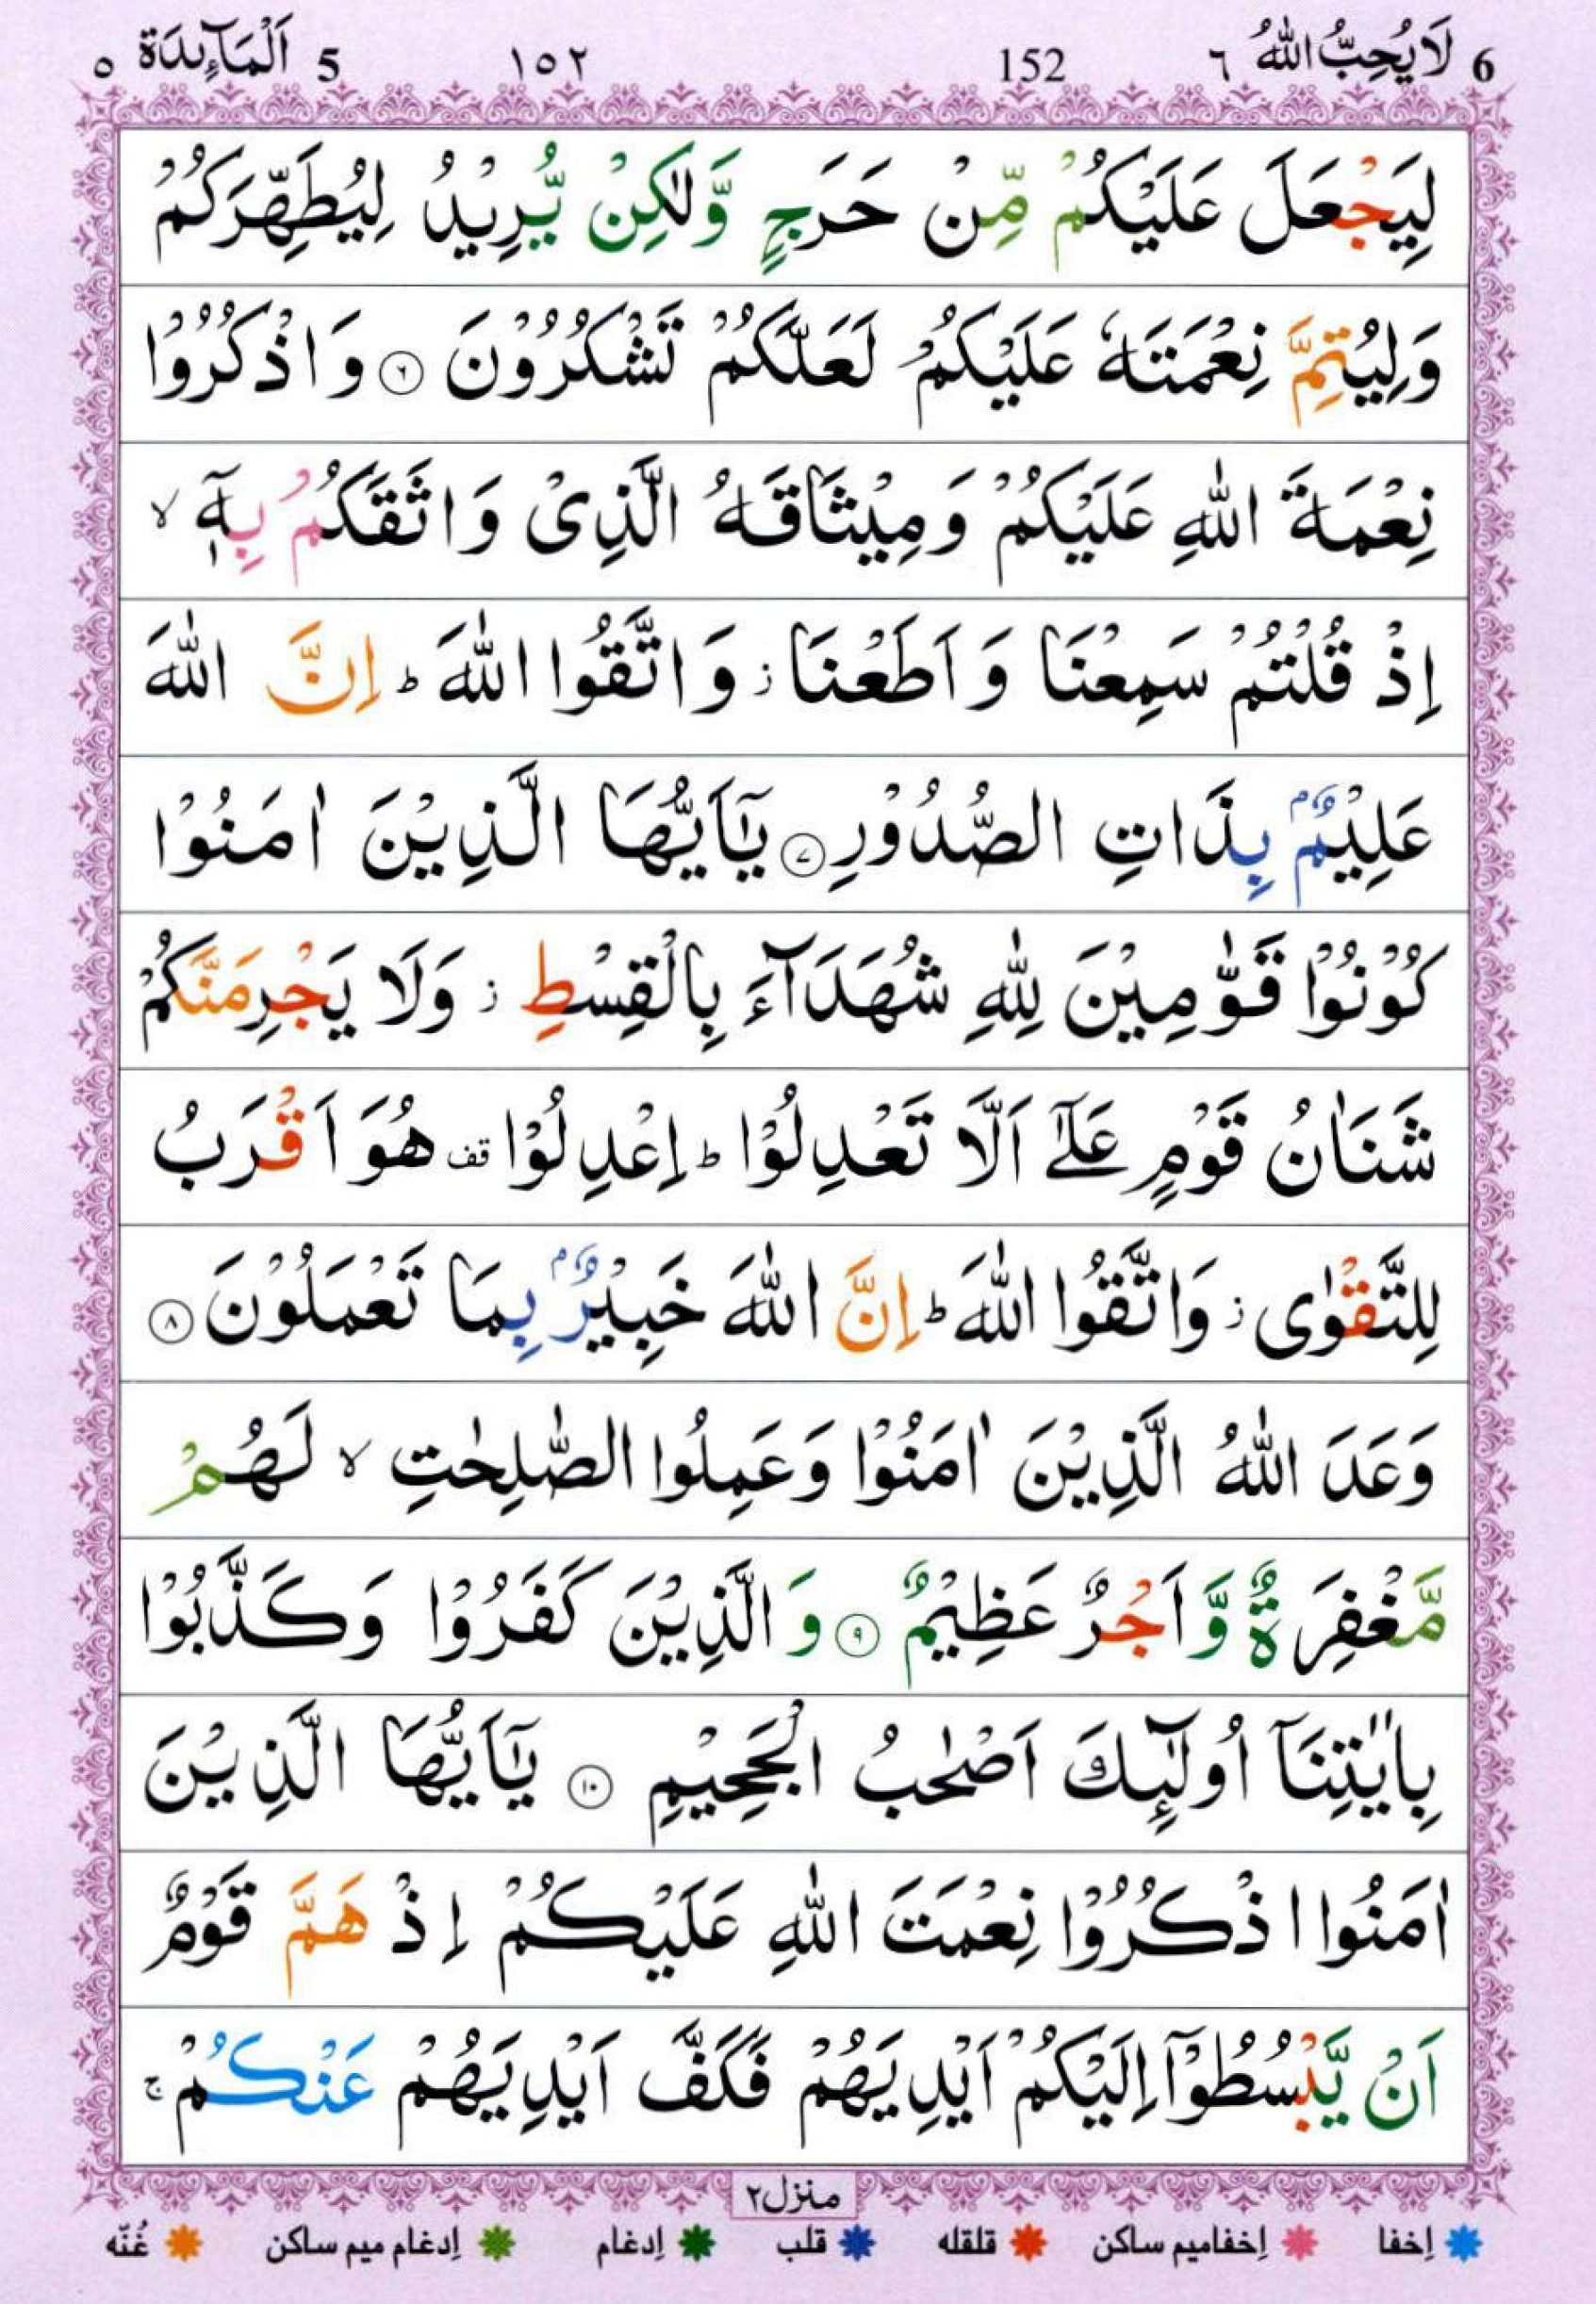 6 لَا یُحِبُّ اللّٰهُ ٦ 152 ١٥٢ 5 اَلْمَآىِٕدَة ٥
لِیَجْعَلَ عَلَیْكُمْ مِّنْ حَرَجٍ وَّلٰكِنْ یُّرِیْدُ لِیُطَهِّرَكُمْ
وَلِیُتِمَّ نِعْمَتَهٗ عَلَیْكُمْ لَعَلَّكُمْ تَشْكُرُوْنَ ۝٦ وَاذْكُرُوْا
نِعْمَةَ اللّٰهِ عَلَیْكُمْ وَمِیْثَاقَهُ الَّذِیْ وَاثَقَكُمْ بِهٖۤ ۙ
اِذْ قُلْتُمْ سَمِعْنَا وَاَطَعْنَا ؗ وَاتَّقُوا اللّٰهَ ؕ اِنَّ اللّٰهَ
عَلِیْمٌۢ بِذَاتِ الصُّدُوْرِ ۝٧ یٰۤاَیُّهَا الَّذِیْنَ اٰمَنُوْا
كُوْنُوْا قَوّٰمِیْنَ لِلّٰهِ شُهَدَآءَ بِالْقِسْطِ ؗ وَلَا یَجْرِمَنَّكُمْ
شَنَاٰنُ قَوْمٍ عَلٰۤی اَلَّا تَعْدِلُوْا ؕ اِعْدِلُوْا قف هُوَ اَقْرَبُ
لِلتَّقْوٰی ؗ وَاتَّقُوا اللّٰهَ ؕ اِنَّ اللّٰهَ خَبِیْرٌۢ بِمَا تَعْمَلُوْنَ ۝٨
وَعَدَ اللّٰهُ الَّذِیْنَ اٰمَنُوْا وَعَمِلُوا الصّٰلِحٰتِ ۙ لَهُمْ
مَّغْفِرَةٌ وَّاَجْرٌ عَظِیْمٌ ۝٩ وَالَّذِیْنَ كَفَرُوْا وَكَذَّبُوْا
بِاٰیٰتِنَاۤ اُولٰٓىِٕكَ اَصْحٰبُ الْجَحِیْمِ ۝١٠ یٰۤاَیُّهَا الَّذِیْنَ
اٰمَنُوا اذْكُرُوْا نِعْمَتَ اللّٰهِ عَلَیْكُمْ اِذْ هَمَّ قَوْمٌ
اَنْ یَّبْسُطُوْۤا اِلَیْكُمْ اَیْدِیَهُمْ فَكَفَّ اَیْدِیَهُمْ عَنْكُمْ ۚ
منزل ٢
اِخفا اِخفامیم ساکن قلقله قلب اِدغام اِدغام میم ساکن غُنّه